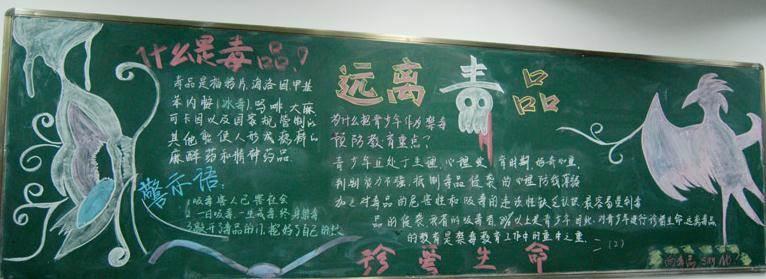 什么是毒品?
毒品是指鸦片,海洛因,甲基
苯丙胺(冰毒)吗啡,大麻
可卡因以及国家规定管制的
其他能使人形成瘾癖的
麻醉药和精神药品。
警示语:
1吸毒害人已害社会
2一日吸毒,一生戒毒,终身禁毒
远离毒品
为什么把青少年作为禁毒
预防教育重点?
青少年正处于生理,心理发育时期,好奇心重,
判别能力不强,抵制毒品侵袭的心理防线薄弱
加之对毒品的危害性和吸毒的违法性缺乏认识,最容易受到毒
品的侵袭,我省的吸毒者以上是青少年,因此,对青少年进行珍爱生命远离毒品
的教育是禁毒教育工作中的重中之重。
二(2)
珍爱生命
向毒品 SAY NO!